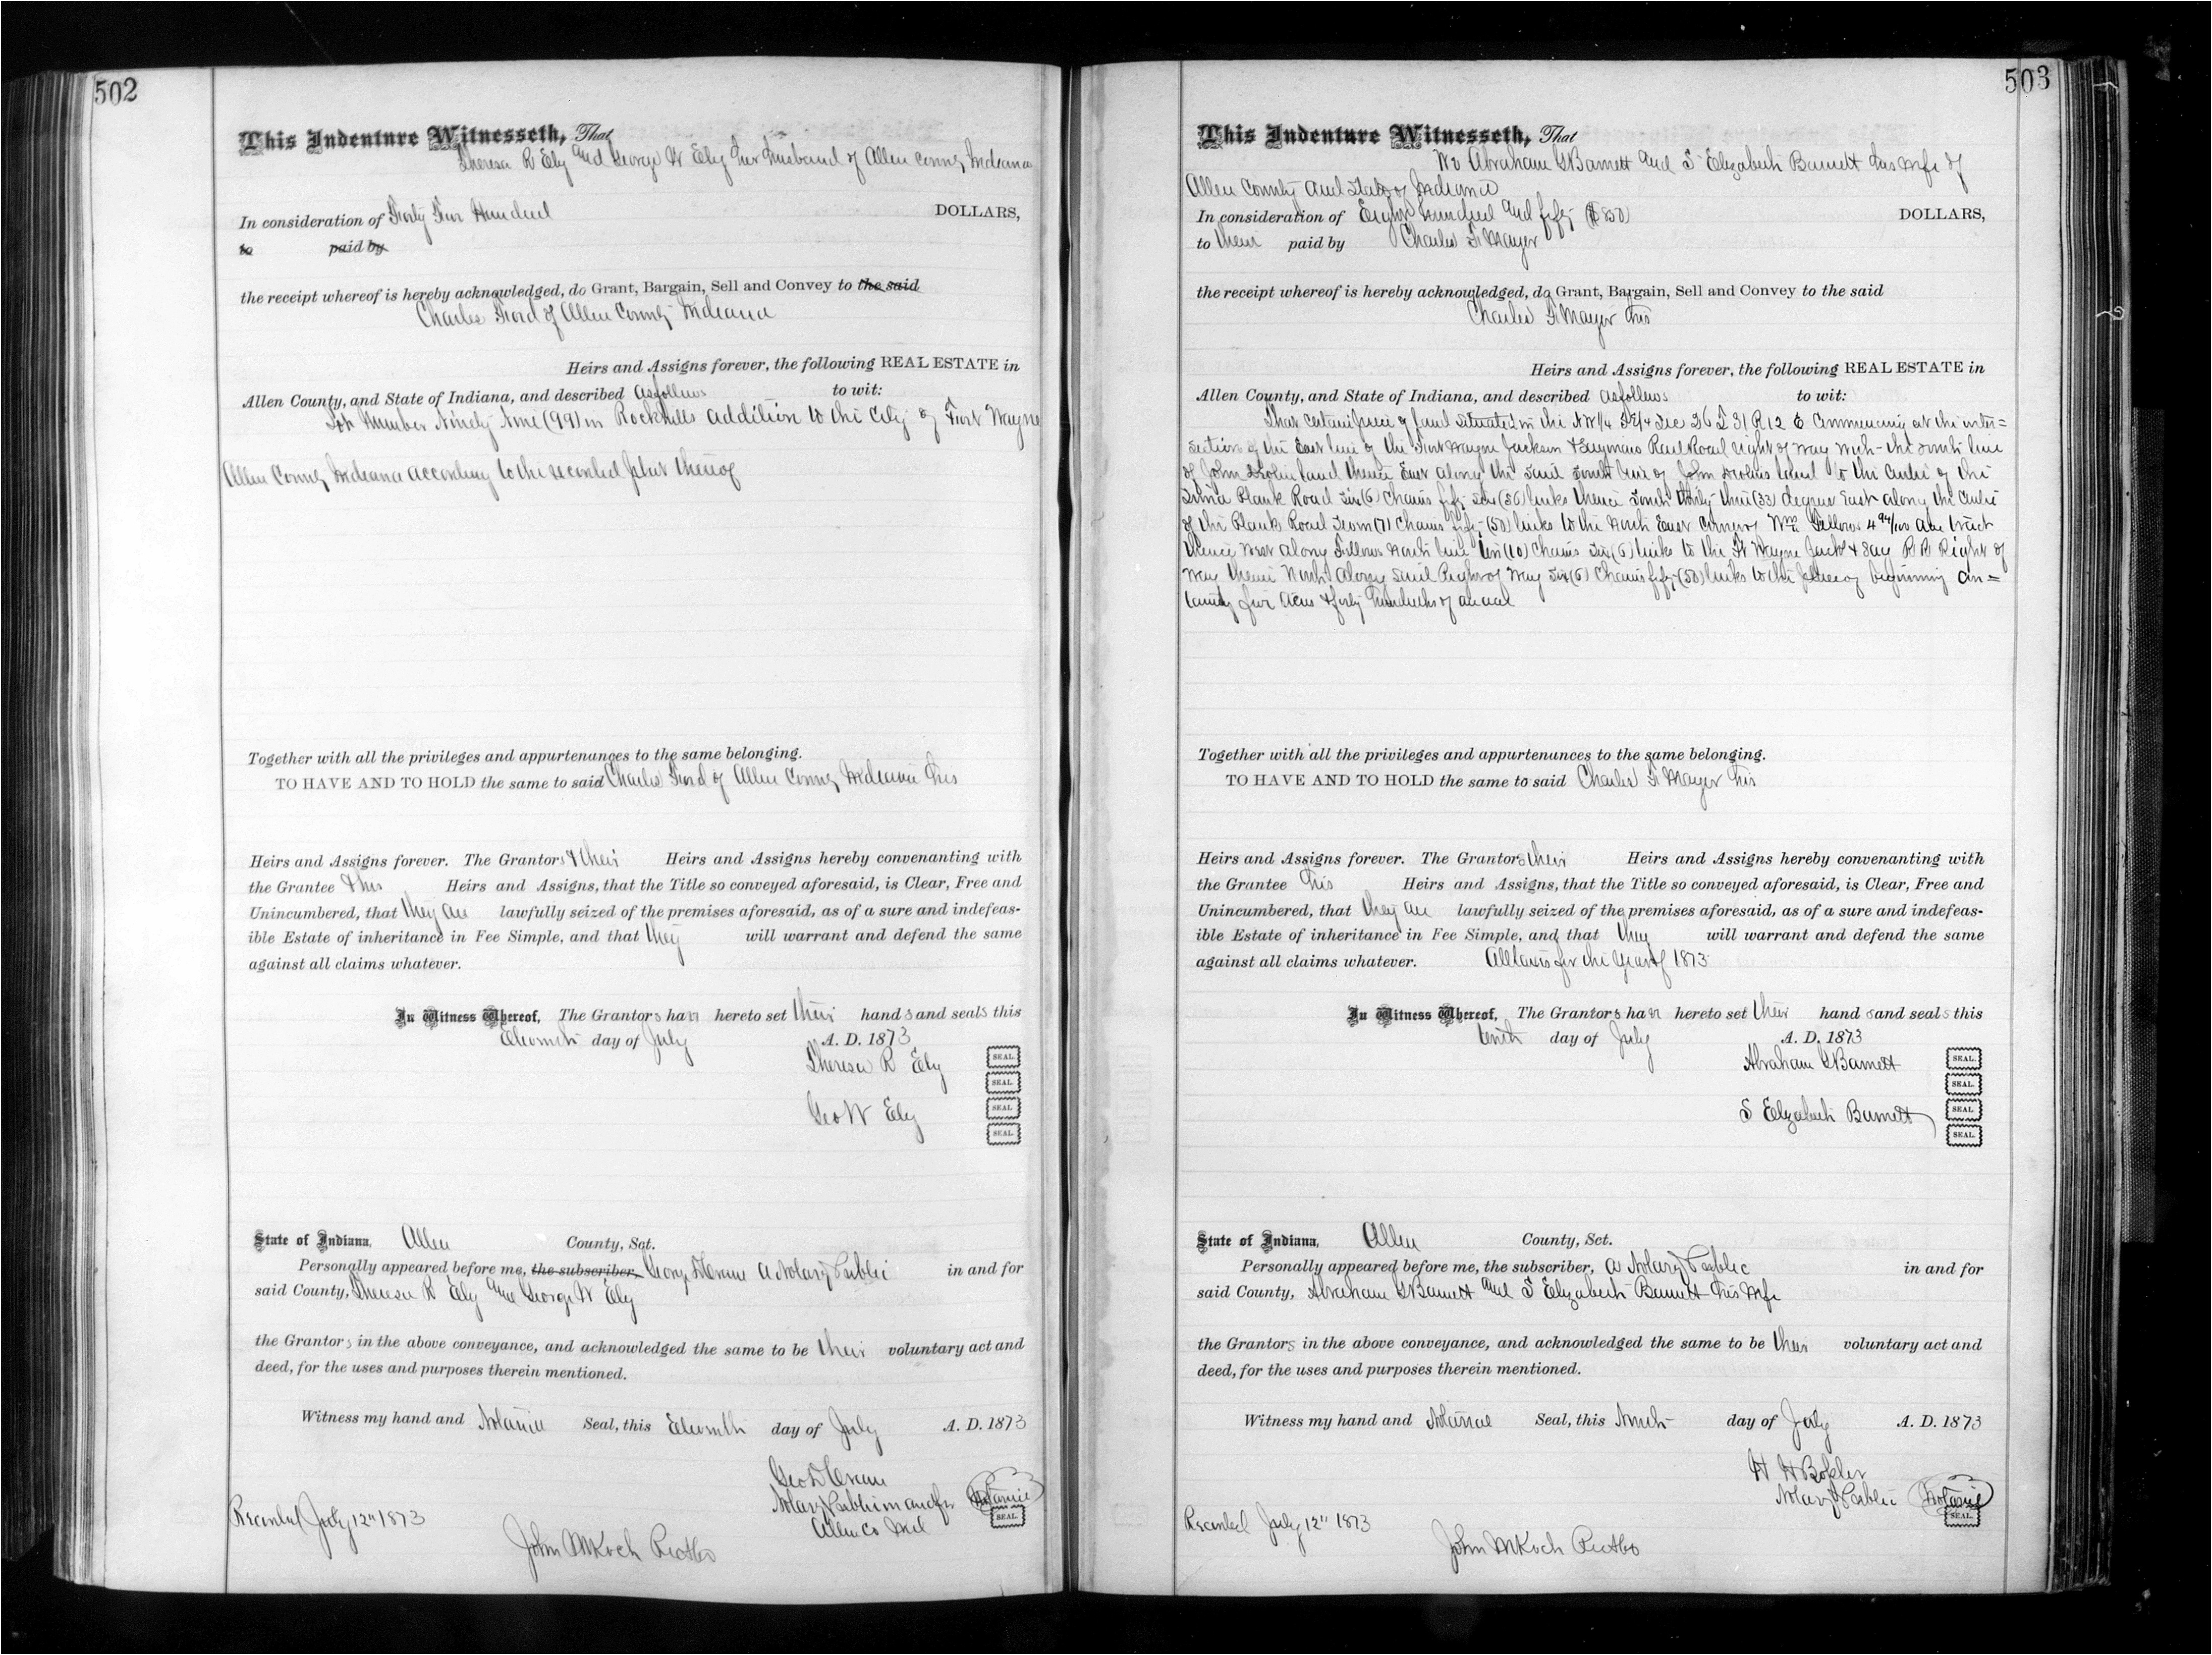 502
This Indenture Witnesseth, That
Theresa R Ely and George W Ely her husband of Allen County Indiana
In consideration of Forty Four Hundred DOLLARS,
to paid by
the receipt whereof is hereby acknowledged, do Grant, Bargain, Sell and Convey to the said
Charles Ford of Allen County Indiana
Heirs and Assigns forever, the following REAL ESTATE in
Allen County, and State of Indiana, and described as follows to wit:
Lot Number Ninety Nine (99) in Rockhills addition to the City of Fort Wayne
Allen County Indiana according to the recorded plat thereof
Together with all the privileges and appurtenances to the same belonging.
TO HAVE AND TO HOLD the same to said Charles Ford of Allen County Indiana his
Heirs and Assigns forever. The Grantors & their Heirs and Assigns hereby convenanting with
the Grantee & his Heirs and Assigns, that the Title so conveyed aforesaid, is Clear, Free and
Unincumbered, that they are lawfully seized of the premises aforesaid, as of a sure and indefeas-
ible Estate of inheritance in Fee Simple, and that they will warrant and defend the same
against all claims whatever.
In Witness Whereof, The Grantors have hereto set their hands and seals this
Eleventh day of July A. D. 1873
Theresa R Ely SEAL.
SEAL.
Geo W Ely SEAL.
SEAL.
State of Indiana, Allen County, Sct.
Personally appeared before me, the subscriber, George D Crane a Notary Public in and for
said County, Theresa R Ely and George W Ely
the Grantors in the above conveyance, and acknowledged the same to be their voluntary act and
deed, for the uses and purposes therein mentioned.
Witness my hand and Notarial Seal, this Eleventh day of July A. D. 1873
Geo D Crane
Notary Public in and for Notarial
Allen Co Ind SEAL.
Recorded July 12" 1873
John M Koch Rec
503
This Indenture Witnesseth, That
We Abraham G Barnett and S Elizabeth Barnett his wife of
Allen County and State of Indiana
In consideration of Eight hundred and fifty ($850) DOLLARS,
to them paid by Charles F Mayer
the receipt whereof is hereby acknowledged, do Grant, Bargain, Sell and Convey to the said
Charles F Mayer his
Heirs and Assigns forever, the following REAL ESTATE in
Allen County, and State of Indiana, and described as follows to wit:
That certain piece of land situated in the NW 1/4 SE 1/4 Sec 26 T 31 R 12 E Commencing at the inter=
section of the East line of the Fort Wayne Jackson & Saginaw Rail Road right of way with the South line
of John land thence East along the said South line of John land to the centre of the
Plank Road six (6) chains fifty six (56) links thence South thirty three (33) degrees East along the centre
of the Plank Road Seven (7) chains fifty (50) links to the North East corner of Wm Fellows 4 94/100 acre tract
thence West along Fellows North line ten (10) chains six (6) links to the Ft Wayne Jack & Sag R R Right of
way thence North along said Right of Way six (6) chains fifty (50) links to the place of beginning con=
taining five acres & forty hundredths of an acre
Together with all the privileges and appurtenances to the same belonging.
TO HAVE AND TO HOLD the same to said Charles F Mayer his
Heirs and Assigns forever. The Grantors their Heirs and Assigns hereby convenanting with
the Grantee his Heirs and Assigns, that the Title so conveyed aforesaid, is Clear, Free and
Unincumbered, that they are lawfully seized of the premises aforesaid, as of a sure and indefeas-
ible Estate of inheritance in Fee Simple, and that they will warrant and defend the same
against all claims whatever. All taxes for the year of 1873
In Witness Whereof, The Grantors have hereto set their hands and seals this
tenth day of July A. D. 1873
Abraham G Barnett SEAL.
SEAL.
S Elizabeth Barnett SEAL.
SEAL.
State of Indiana, Allen County, Sct.
Personally appeared before me, the subscriber, a Notary Public in and for
said County, Abraham G Barnett and S Elizabeth Barnett his wife
the Grantors in the above conveyance, and acknowledged the same to be their voluntary act and
deed, for the uses and purposes therein mentioned.
Witness my hand and Notarial Seal, this day of July A. D. 1873
H H
Notary Public Notarial
SEAL.
Recorded July 12" 1873
John M Koch Rec